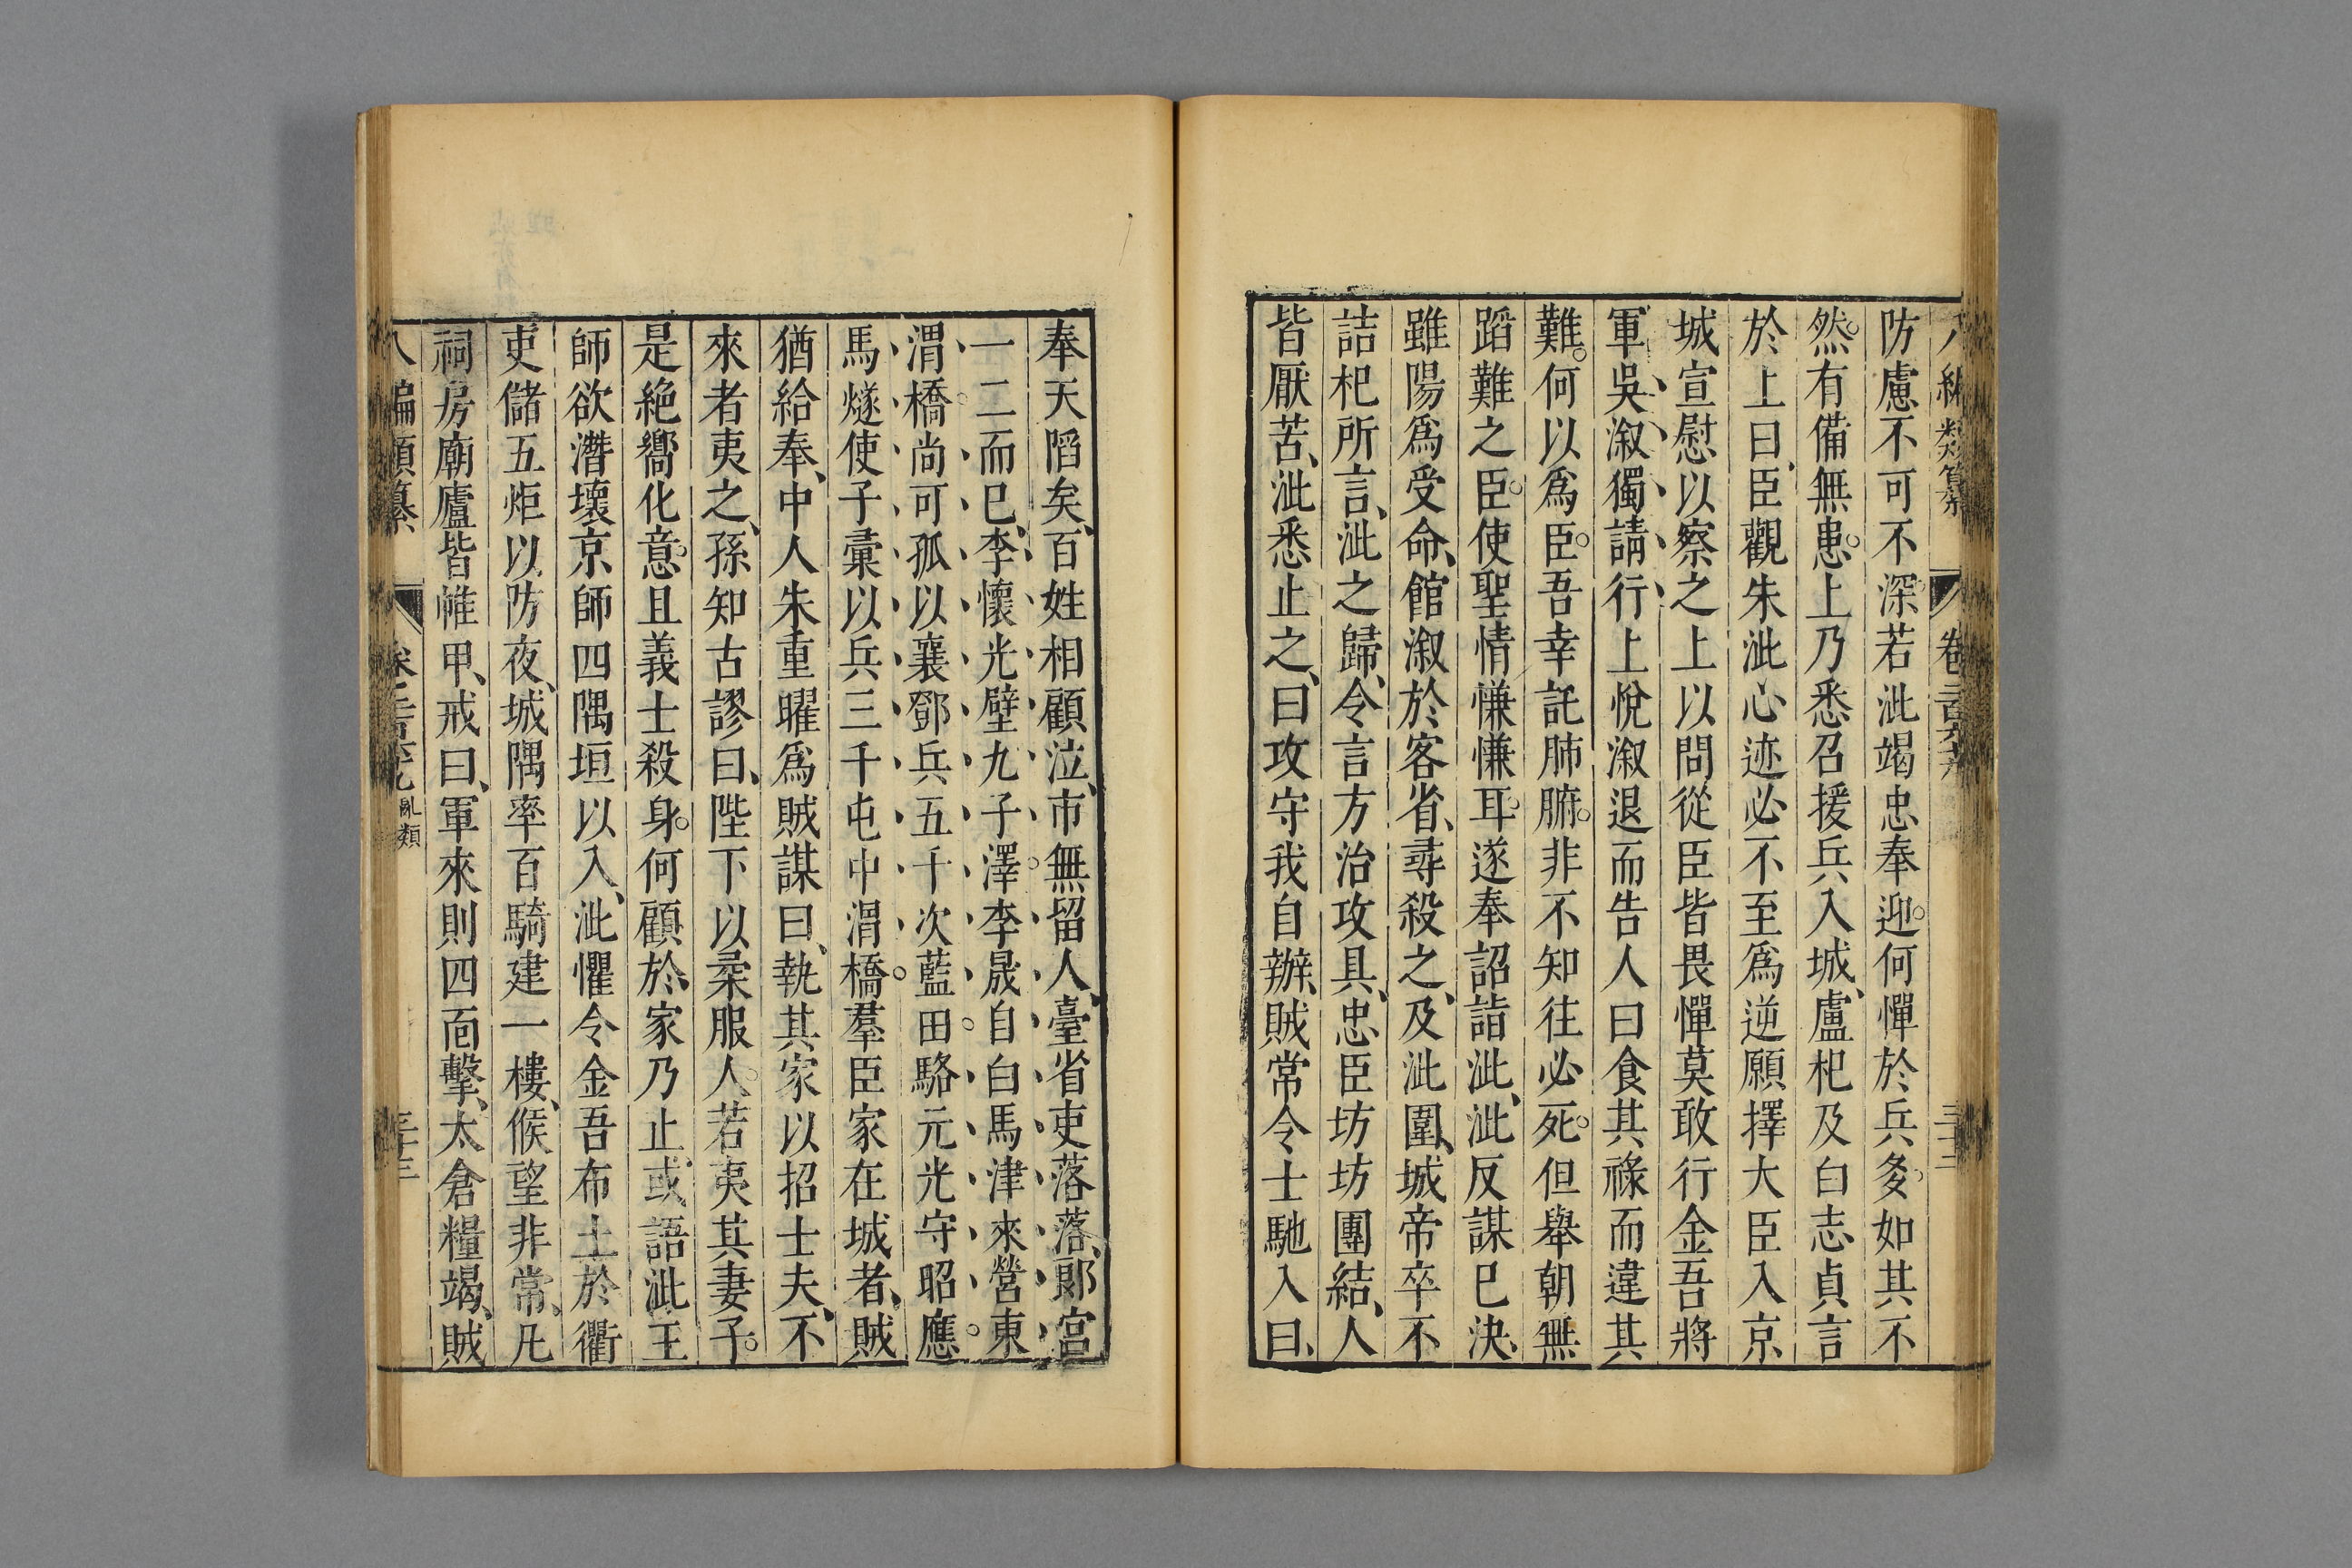 防慮不可不深若泚竭忠奉迎何憚於兵多如其不
然有備無患上乃悉召援兵入城盧杞及白志貞言
於上曰臣觀朱泚心迹必不至爲逆願擇大臣入京
城宣慰以察之上以問從臣皆畏憚莫敢行金吾將
軍吳漵獨請行上悅漵退而告人曰食其祿而違其
難何以爲臣吾幸託肺腑非不知往必死但舉朝無
蹈難之臣使聖情慊慊耳遂奉詔詣泚泚反謀已決
雖陽爲受命館漵於客省尋殺之及泚圍城帝卒不
詰杞所言泚之歸令言方治攻具忠臣坊坊團結人
皆厭苦泚悉止之曰攻守我自辦賊常令士馳入曰
奉天䧟矣百姓相顧泣市無留人臺省吏落落郎官
一二而已李懷光壁九子澤李晟自白馬津來營東
渭橋尚可孤以襄鄧兵五千次藍田駱元光守昭應
馬燧使子彙以兵三千屯中渭橋羣臣家在城者賊
猶給奉中人朱重曜爲賊謀曰執其家以招士夫不
來者夷之孫知古謬曰陛下以柔服人若夷其妻子
是絶嚮化意且義士殺身何顧於家乃止或語泚王
師欲潛壞京師四隅垣以入泚懼令金吾布士於衢
吏儲五炬以防夜城隅率百騎建一樓候望非常凡
祠房廟廬皆帷甲戒曰軍來則四靣擊太倉糧竭賊
八編類纂 亂類